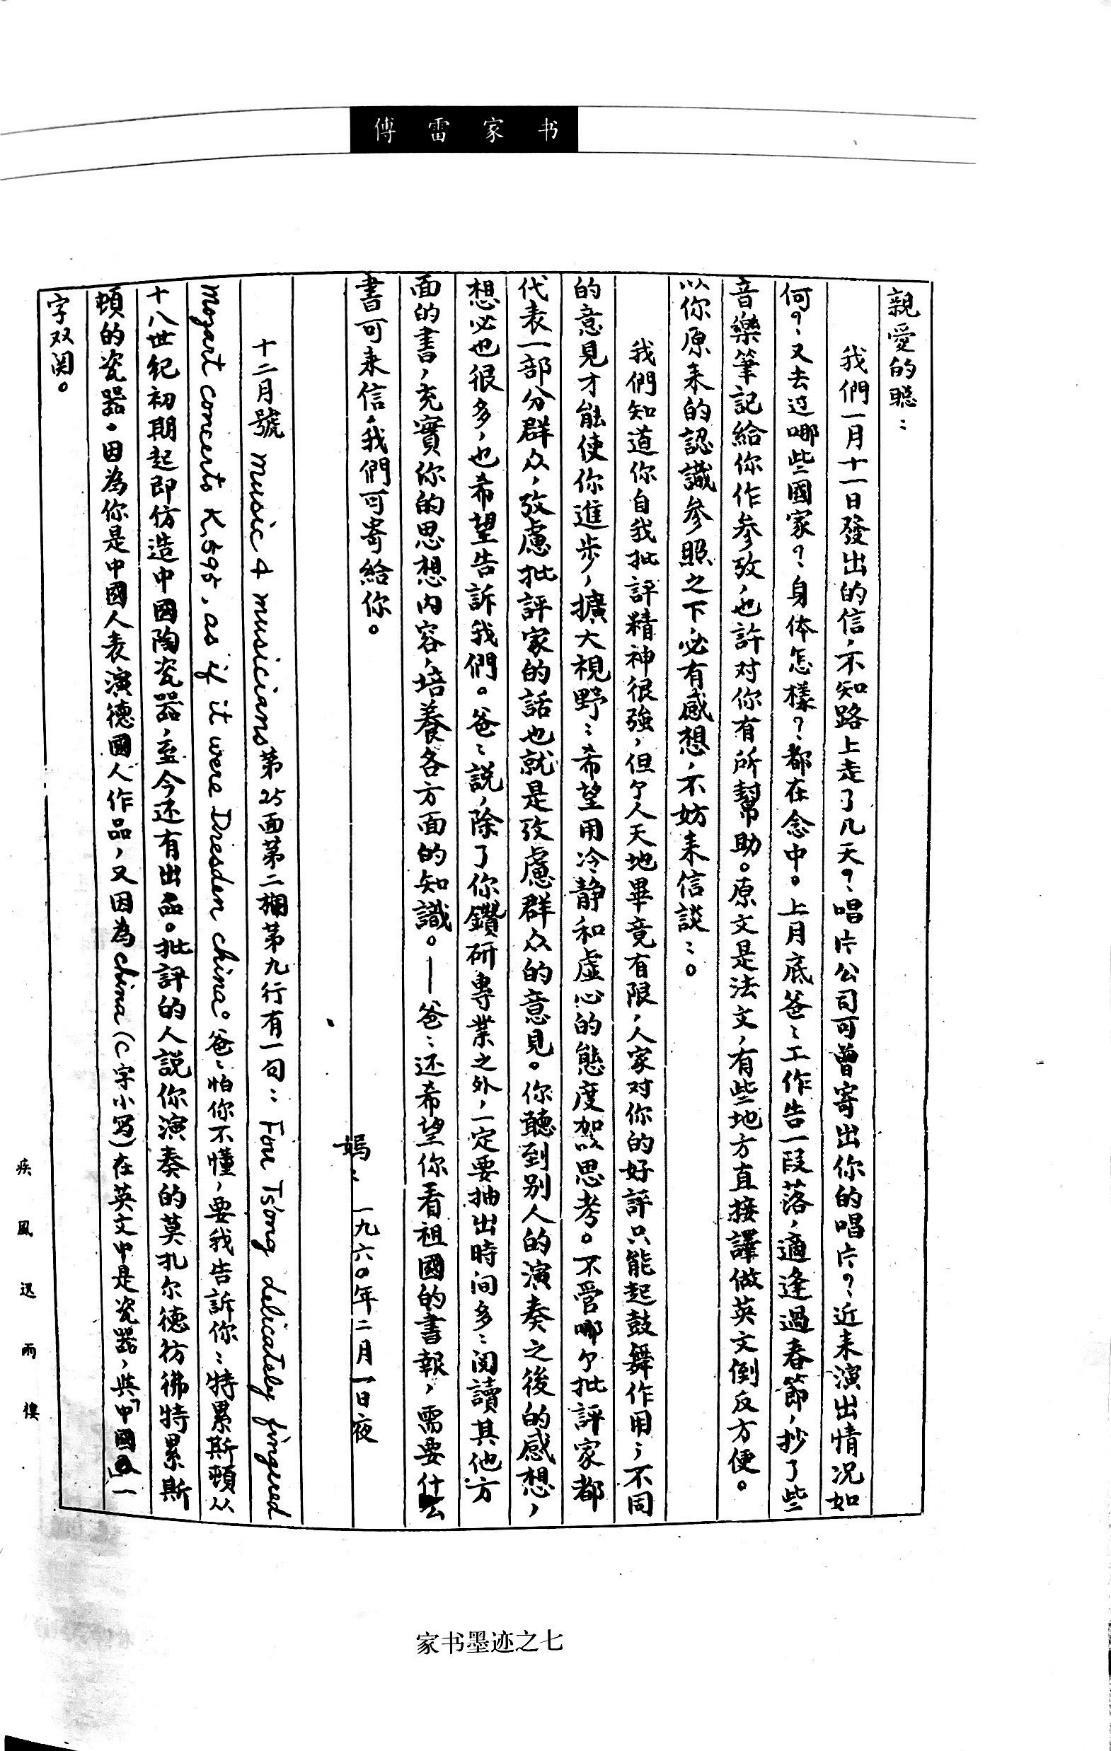 傅雷家书
親愛的聰：
我們一月十一日發出的信，不知路上走了几天？唱片公司可曾寄出你的唱片？近来演出情况如
何？又去过哪些國家？身体怎樣？都在念中。上月底爸：工作告一段落，適逢過春節，抄了些
音樂筆記給你作参攷，也許对你有所幫助。原文是法文，有些地方直接譯做英文倒反方便。
以你原来的認識参照之下，必有感想，不妨来信談：。
我們知道你自我批評精神很強，但个人天地畢竟有限，人家对你的好評只能起鼓舞作用；不同
的意見才能使你進步，擴大視野：希望用冷静和虚心的態度加以思考。不管哪个批評家都
代表一部分群众，攷慮批評家的話也就是攷慮群众的意見。你聽到别人的演奏之後的感想，
想必也很多，也希望告訴我們。爸：説，除了你鑽研專業之外，一定要抽出時间多：閲讀其他方
面的書，充實你的思想内容，培養各方面的知識。——爸：还希望你看祖國的書報，需要什么
書可来信，我們可寄給你。
媽： 一九六〇年二月一日夜
十二月號 music & musicians 第25面第二欄第九行有一句：Fou Ts'ong delicately fingered
mozart concerto K.595, as if it were Dresden china。爸：怕你不懂，要我告訴你：特累斯頓从
十八世紀初期起即仿造中國陶瓷器，至今还有出品。批評的人説你演奏的莫扎尔德彷彿特累斯
頓的瓷器。因為你是中國人表演德國人作品，又因為china（c字小写）在英文中是瓷器，與「中國」一
字双関。
疾風迅雨樓
家书墨迹之七